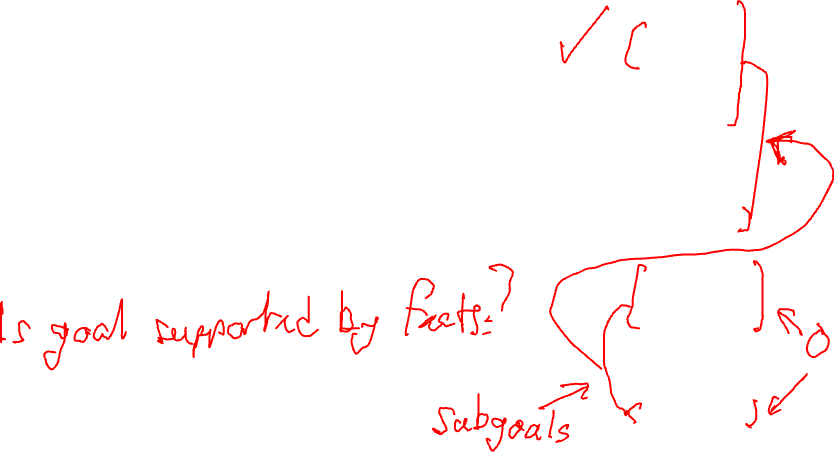 Is goal supported by facts?
subgoals